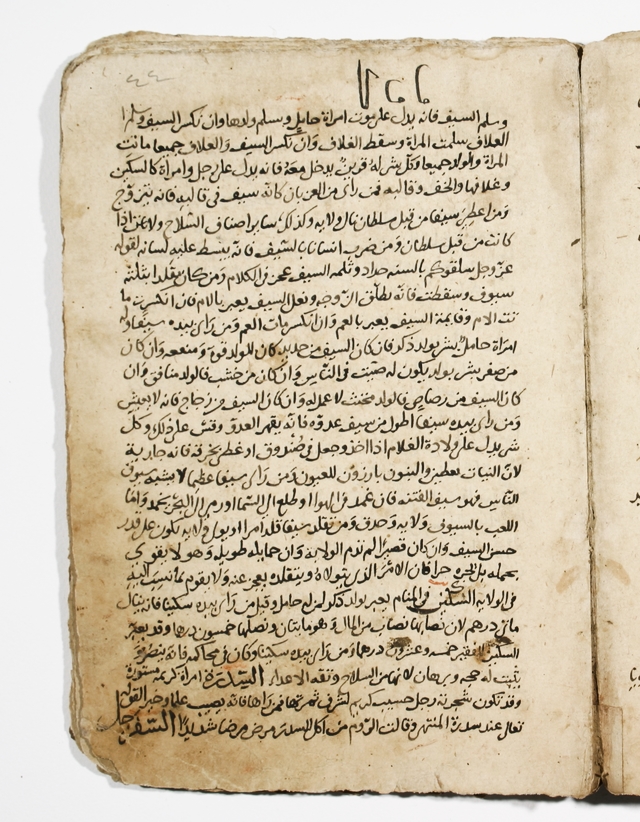 ٤٤
وسلم السيف فانه يدل على موت امراة حامل وسلم ولدها وان نكسر السيف وسلم
الغلاف سلمت المراة وسقط الغلاف وان نكسر السيف والغلاف جميعا ماتت
المراة والولد جميعا وكل شي له قرين يدخل معه فانه يدل على رجل وامراة كالسكين
وغلافها والخف وقالبه فمن راى من العزبان كانه سيف في قالبه فانه يتزوج
ومن اعطى سيفا من قبل سلطان نال ولايه وكذلك ساير اصناف السلاح
كانت من قبل سلطان ومن ضرب انسانا بالسيف فانه يبسط عليه لسانه لقوله
عز وجل سلقوكم بالسنه حداد وثلمه السيف عجز في الكلام ومن كان مقلدا بثلثه
سيوف وسقطت فانه يطلق الزوجه ونعل السيف يعبر بالام فان انكسرت ما
تت الام وقايمة السيف يعبر بالعم وان انكسر مات العم ومن راى بيده سيفا وله
امراة حامل بشر بولد ذكر فان كان السيف من حديد كان للولد قوة ومنعه وان كان
من صفر بشر بولد يكون له صيت في الناس وان كان من خشب فالولد منافق وان
كان السيف من رصاص فالولد مخنث لا عمر له وان كان السيف من زجاج فانه لا يعيش
ومن راى بيده سيفا اطول من سيف عدوه فانه يقهر العدو وقس على ذلك وكل
شي يدل على ولادة الغلام اذا اخذ وجعل في صندوق او غطي بخرقه فانه جارية
لان البنات تغطين والبنون بارزون للعيون ومن راى سيفا عظيما لا يشبه سيوف
الناس فهو سيف الفتنه فان عمد في الهوا او طلع الى السما او رمي الى البحر يخمد واما
اللعب بالسيوف ولايه وحذق ومن تقلد سيفا قلد امرا او يولى ولايه يكون على قدر
حسن السيف وان كان قصيرا لم تدم الولايه وان حمايله طويله وهو لا يقوى
بحمله بل يجره جرا فان الامر الذي يتولاه ويتقلده يعجز عنه ولا يقوم بما نسب اليه
في الولايه السكين في المنام يعبر بولد ذكر لمن له حامل وقيل من راى بيده سكينا فانه ينال
مايتي درهم لان نصابها نصاب من المال وهو مايتان ونصلها خمسون درها وقد يعبر
السكين للفقير خمسه وعشرون درهما ومن راى بيده سكينا وكان في محاكمه فانه ينصر و
يثبت له حجه وبرهان لانها من السلاح وثقه الاعدار السدرة امراة كريمه مستورة
وقد تكون شجرته رجل حسيب كريم لشرف ثمرتها فمن راها فانه يصيب علما وخير القول
تعالى عند سدرة المنتهى وقالت الروم من اكل السدر مرض مرضا شديدا السفرجل